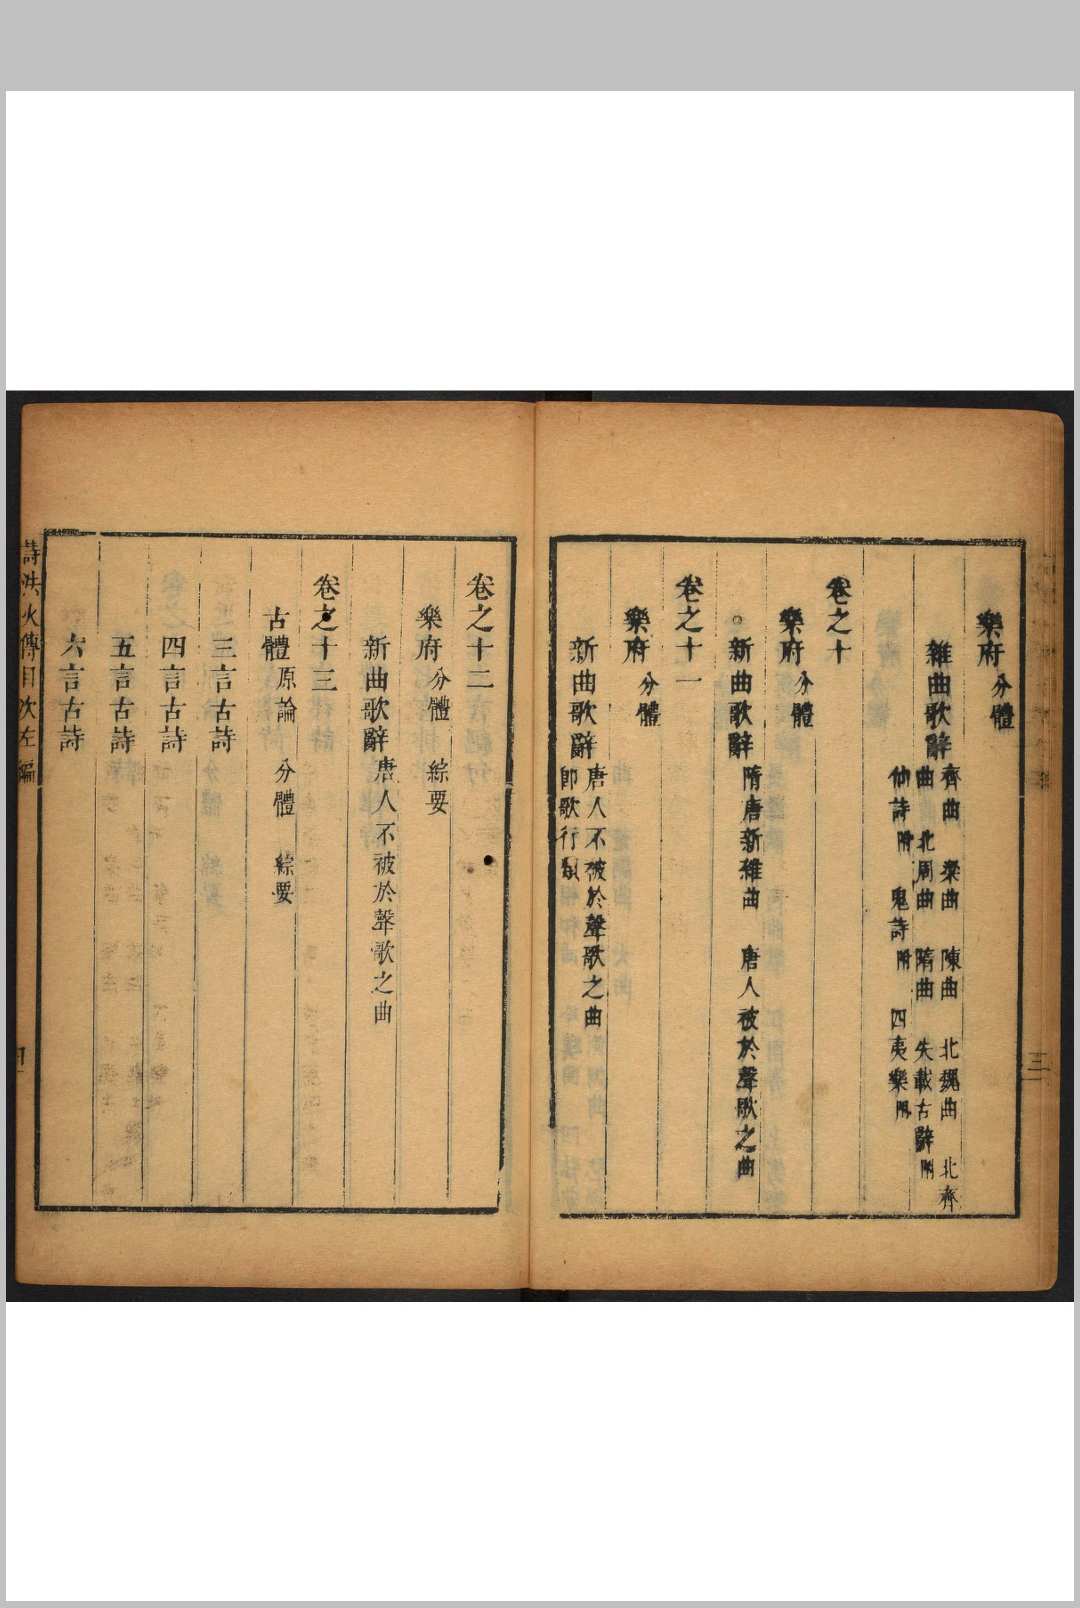 樂府 分體
雜曲歌辭 齊曲 梁曲 陳曲 北魏曲 北齊
曲 北周曲 隋曲 失載古辭附
仙詩附 鬼詩附 四夷樂附
卷之十
樂府 分體
新曲歌辭 隋唐新雜曲 唐人被於聲歌之曲
卷之十一
樂府 分體
新曲歌辭 唐人不被於聲歌之曲
即歌行類
三
卷之十二
樂府 分體 綜要
新曲歌辭 唐人不被於聲歌之曲
卷之十三
古體 原論 分體 綜要
三言古詩
四言古詩
五言古詩
六言古詩
目次左編